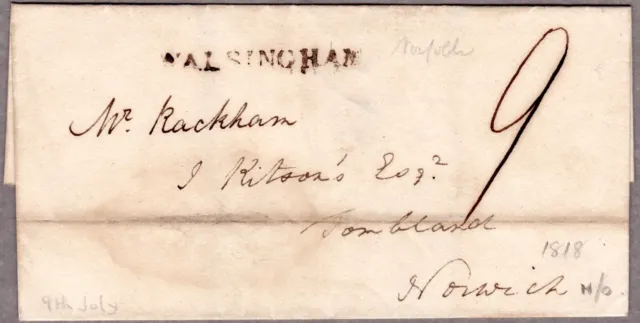 WALSINGHAM
Norfolk
9
Mr. Rackham
J Kitson's Esqr.
Tombland
1818
Norwich
N/o.
9th July